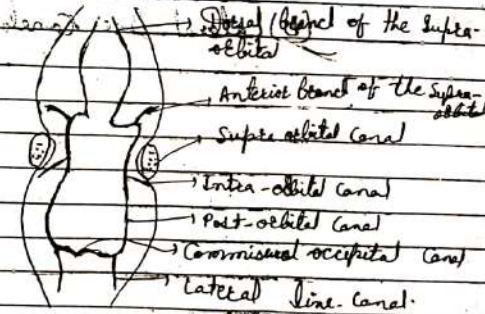 Dorsal branch of the Supra-
orbital
Anterior branch of the Supra-
orbital
Supra orbital Canal
Intra-orbital Canal
Post-orbital Canal
Commisural occipital Canal
Lateral line-Canal.